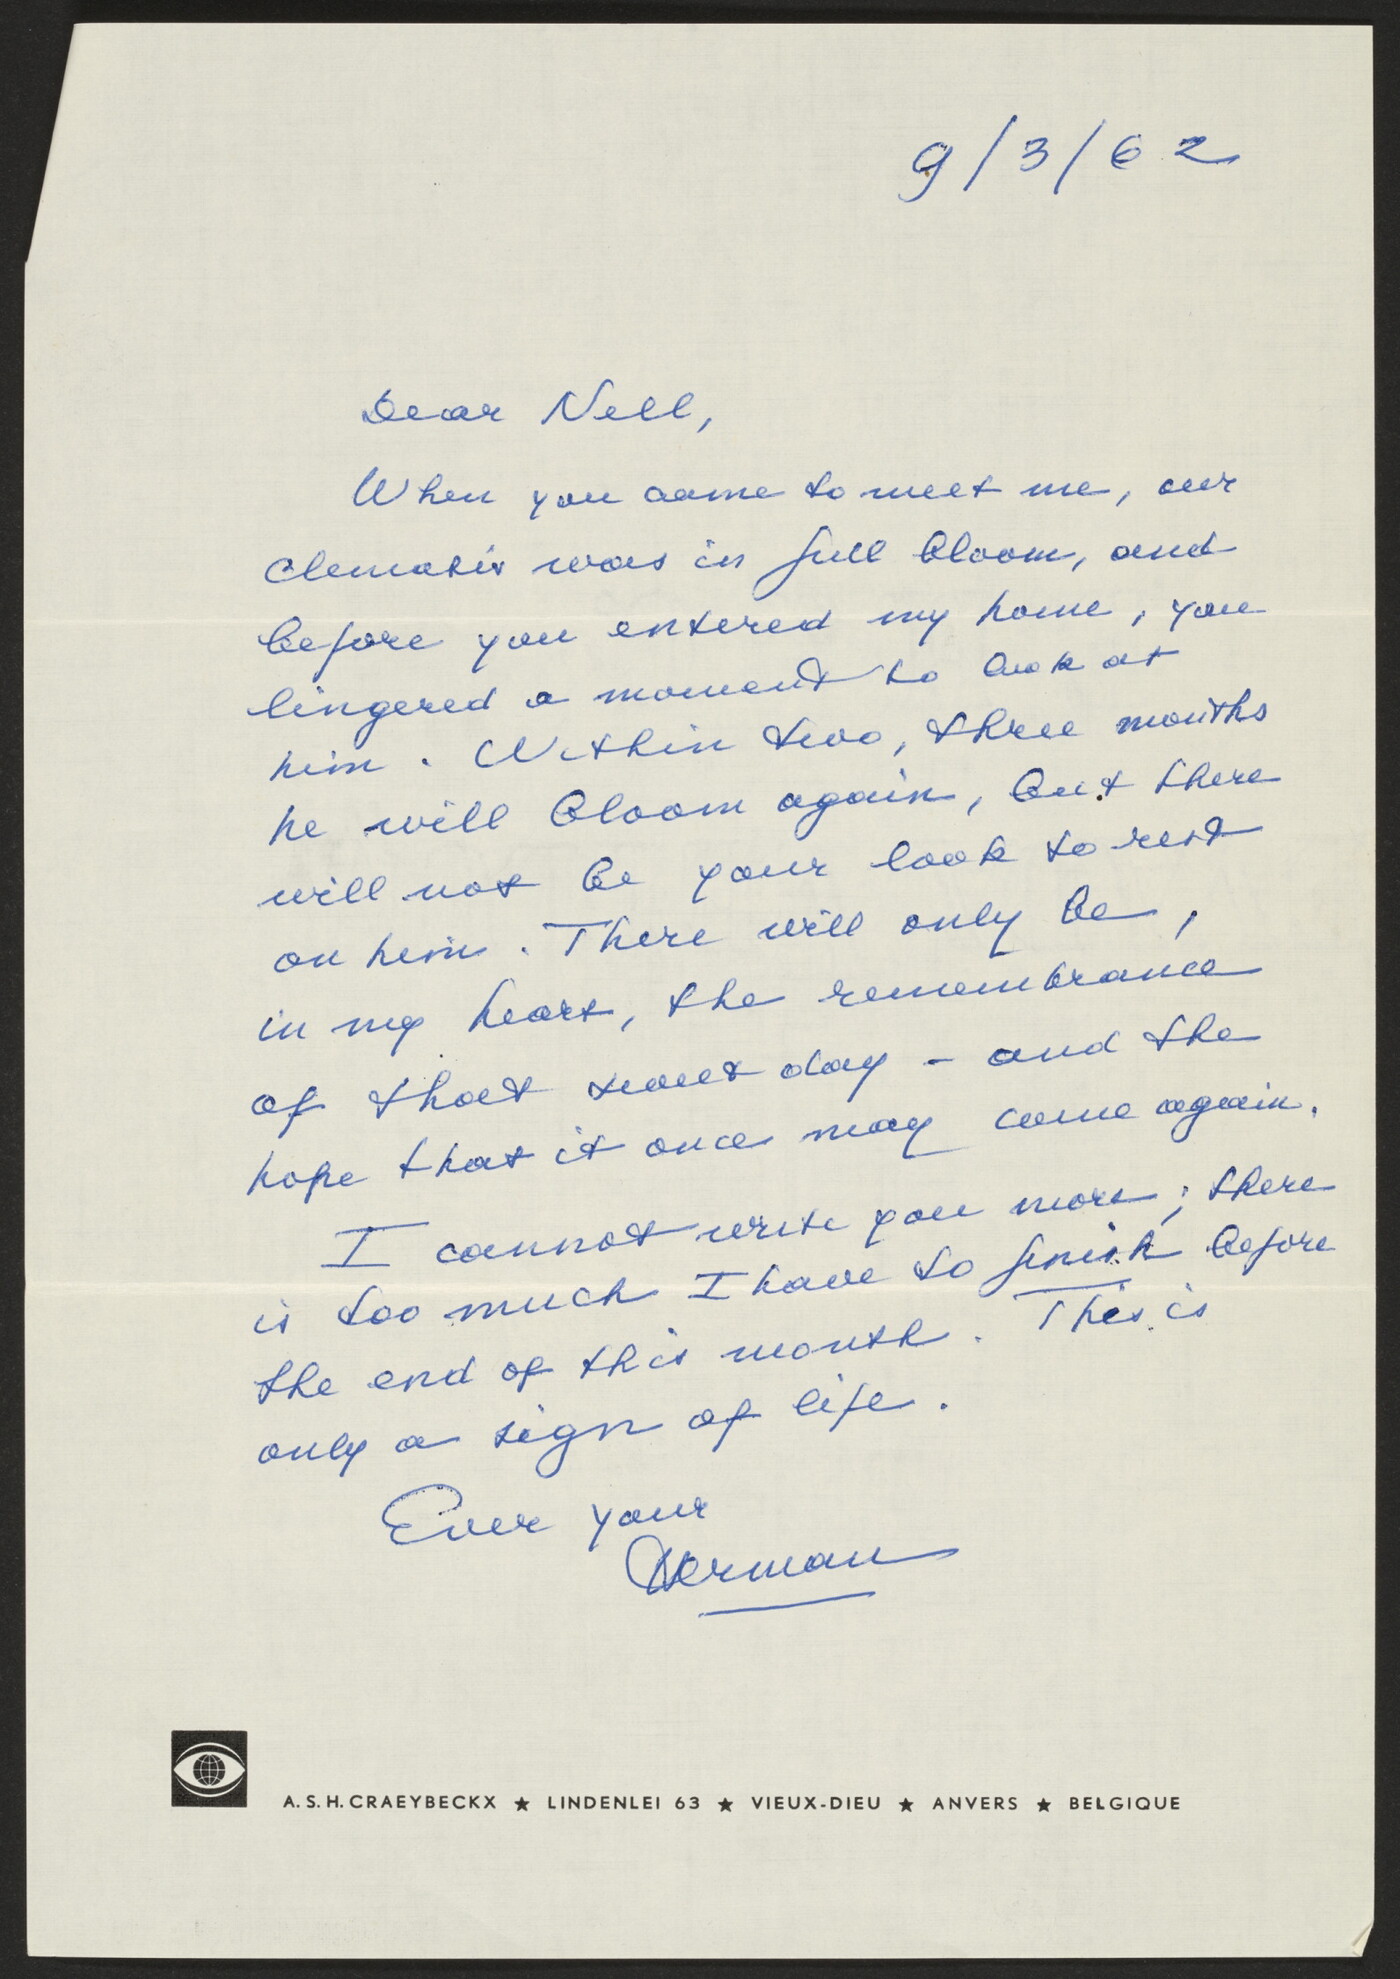 9/3/62
Dear Nell,
When you came to meet me, our
Clematis was in full bloom, and
before you entered my home, you
lingered a moment to look at
him. Within two, three months
he will bloom again, but there
will not be your look to rest
on him. There will only be,
in my heart, the remembrance
of that sweet day - and the
hope that it once may come again.
I cannot write you more; there
is too much I have to finish before
the end of this month. This is
only a sign of life.
Ever your
Herman
A. S. H. CRAEYBECKX ★ LINDENLEI 63 ★ VIEUX-DIEU ★ ANVERS ★ BELGIQUE